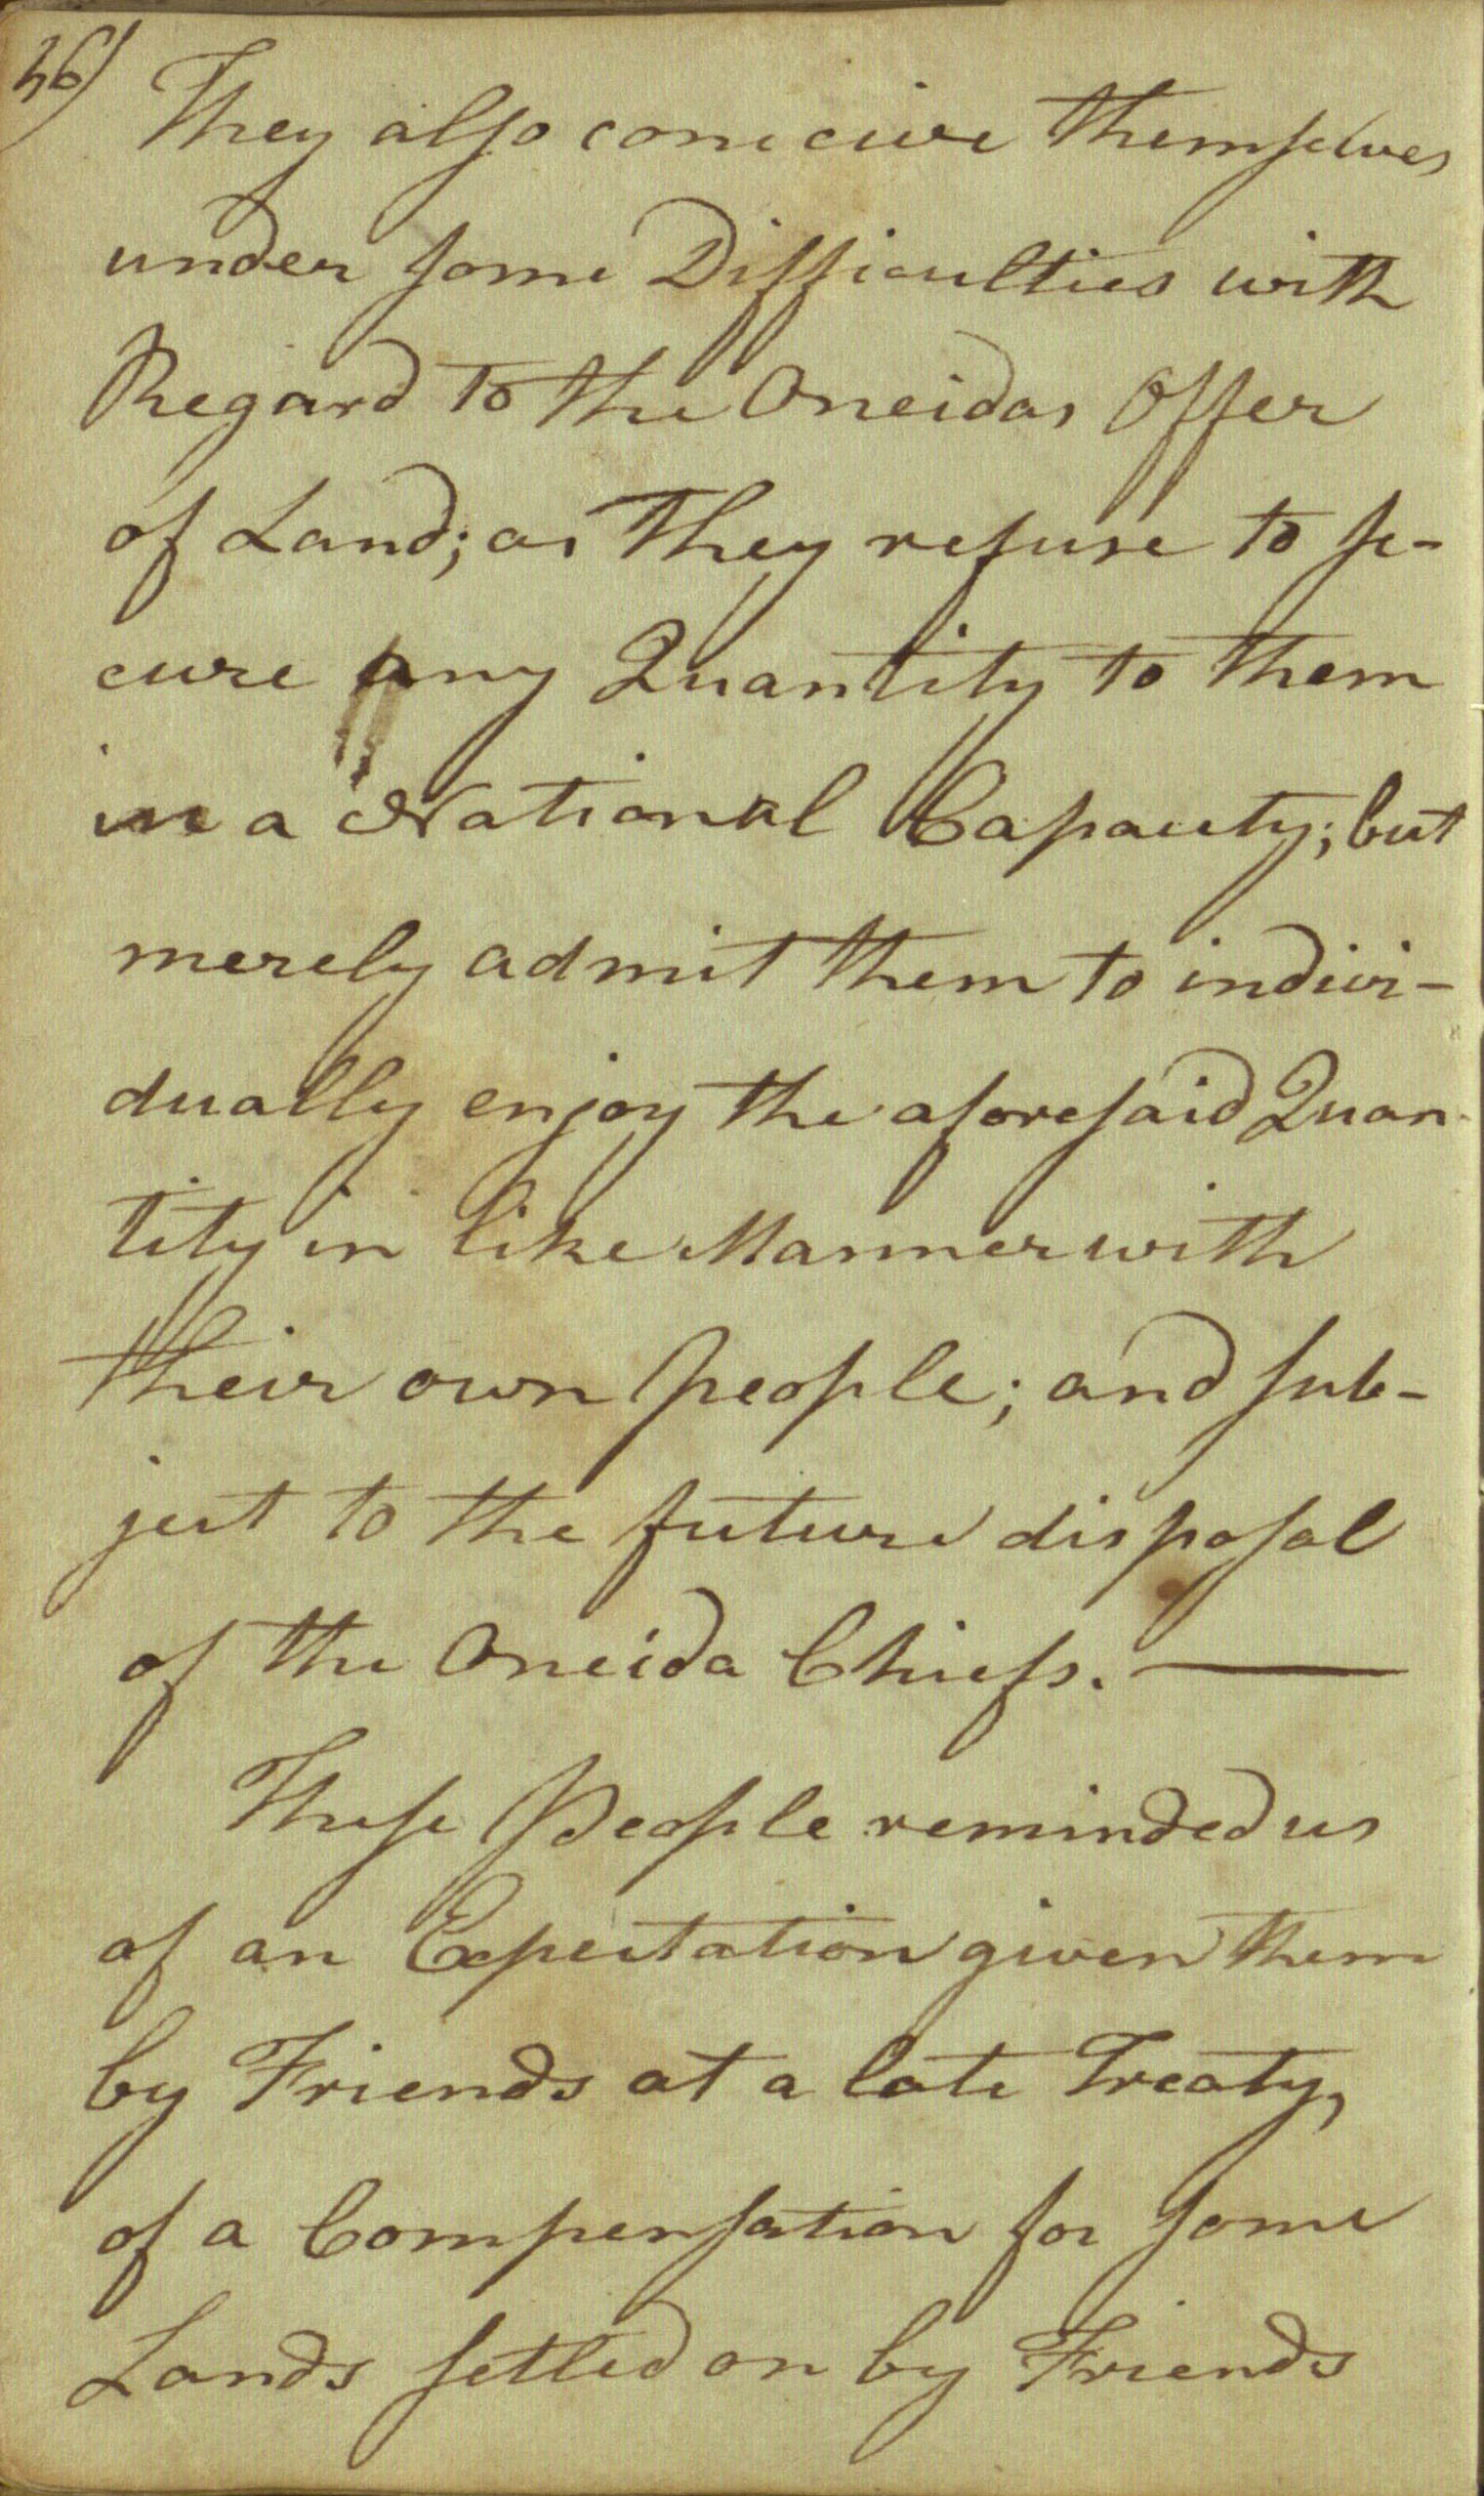 36)
They also conceive themselves
under some Difficulties with
Regard to the Oneidas Offer
of Land; as they refuse to se-
cure any Quantity to them
in a National Capacity; but
merely admit them to indivi-
dually enjoy the aforesaid Quan-
tity in like Manner with
their own people; and sub-
ject to the future disposal
of the Oneida Chiefs. —
These People reminded us
of an Expectation given them
by Friends at a late Treaty,
of a Compensation for some
Lands settled on by Friends